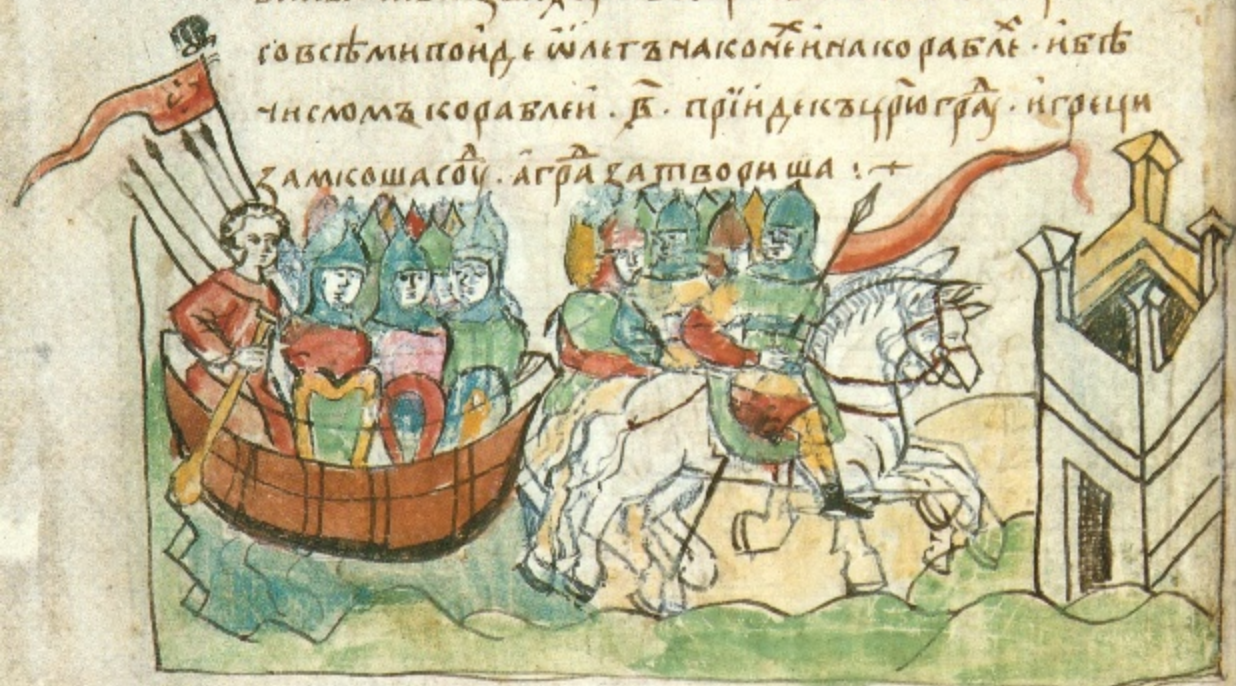 со всѣми поиде ѡлегъ на конеⷯ и на кораблеⷯ · и бѣ
числомъ кораблеи · в҃ · прїиде къ цр҃юграⷣ · и греци
замкоша соуⷣ · а граⷣ затвориша :